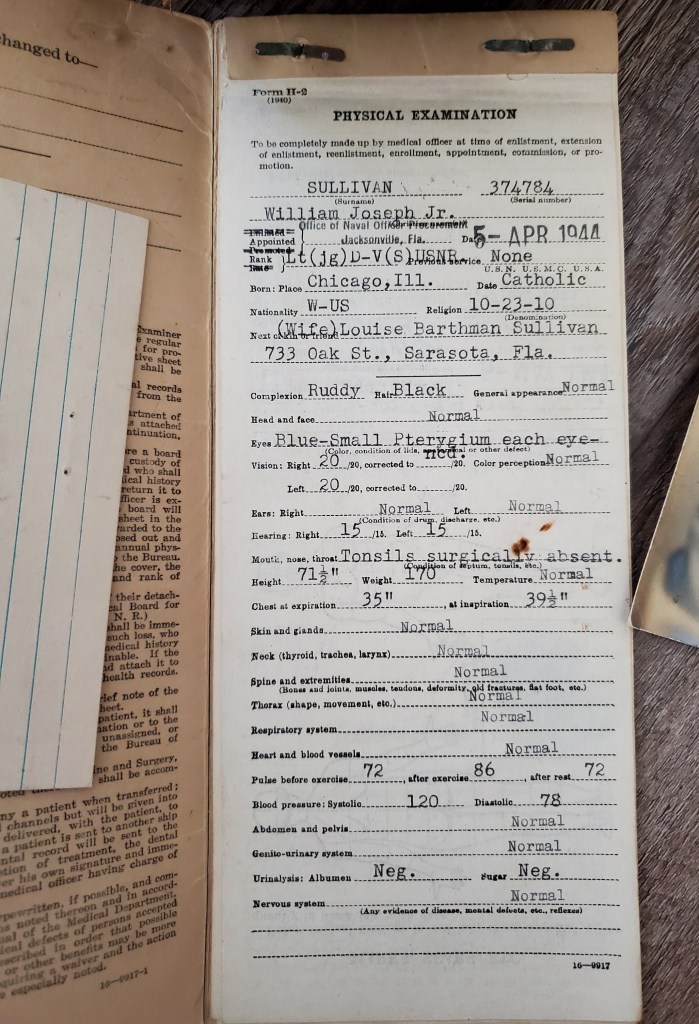 changed to—
Examiner
e regular
for pro-
tive sheet
shall be
al records
from the
artment of
s attached
ntinuation,
re a board
custody of
d who shall
lical history
return it to
fficer is ex-
board will
sheet in the
warded to the
osed out and
annual phys-
the Bureau.
he cover, the
and rank of
their detach-
cal Board for
N. R.)
shall be imme-
such loss, who
medical history
inable. If the
d attach it to
health records.
rief note of the
heet.
patient, it shall
nation or to the
unassigned, or
the Bureau of
ne and Surgery,
shall be accom-
ny a patient when transferred;
l channels but will be given into
delivered, with the patient, to
a patient is sent to another ship
ntal record will be sent to the
etion of treatment, the dental
er his own signature and imme-
medical officer having charge of
ypewritten, if possible, and com-
s noted thereon and in accord-
ual of the Medical Department.
ical defects of persons accepted
scribed in order that possible
or other benefits may be more
quiring a waiver and the action
e especially noted.
16—9917-1
Form H-2
(1940)
PHYSICAL EXAMINATION
To be completely made up by medical officer at time of enlistment, extension
of enlistment, reenlistment, enrollment, appointment, commission, or pro-
motion.
SULLIVAN 374784
(Surname) (Serial number)
William Joseph Jr.
Office of Naval Officer Procurement
Enlisted
Appointed Jacksonville, Fla. Date 5- APR 1944
Promoted
Rank Lt(jg)D-V(S)USNR Previous service None
Rate U.S.N. U.S.M.C. U.S.A.
Born: Place Chicago,Ill. Date Catholic
Nationality W-US Religion 10-23-10
(Denomination)
Next of kin or friend (Wife)Louise Barthman Sullivan
733 Oak St., Sarasota, Fla.
Complexion Ruddy Hair Black General appearance Normal
Head and face Normal
Eyes Blue-Small Pterygium each eye-
(Color, condition of lids, or other defect)
Vision: Right 20/20, corrected to /20. Color perception Normal
Left 20/20, corrected to /20.
Ears: Right Normal Left Normal
(Condition of drum, discharge, etc.)
Hearing: Right 15/15. Left 15/15.
Mouth, nose, throat Tonsils surgically absent.
(Condition of septum, tonsils, etc.)
Height 71½" Weight 170 Temperature Normal
Chest at expiration 35", at inspiration 39½"
Skin and glands Normal
Neck (thyroid, trachea, larynx) Normal
Spine and extremities Normal
(Bones and joints, muscles, tendons, deformity, old fractures, flat foot, etc.)
Thorax (shape, movement, etc.) Normal
Respiratory system Normal
Heart and blood vessels Normal
Pulse before exercise 72, after exercise 86, after rest 72
Blood pressure: Systolic 120 Diastolic 78
Abdomen and pelvis Normal
Genito-urinary system Normal
Urinalysis: Albumen Neg. Sugar Neg.
Nervous system Normal
(Any evidence of disease, mental defects, etc., reflexes)
16—9917